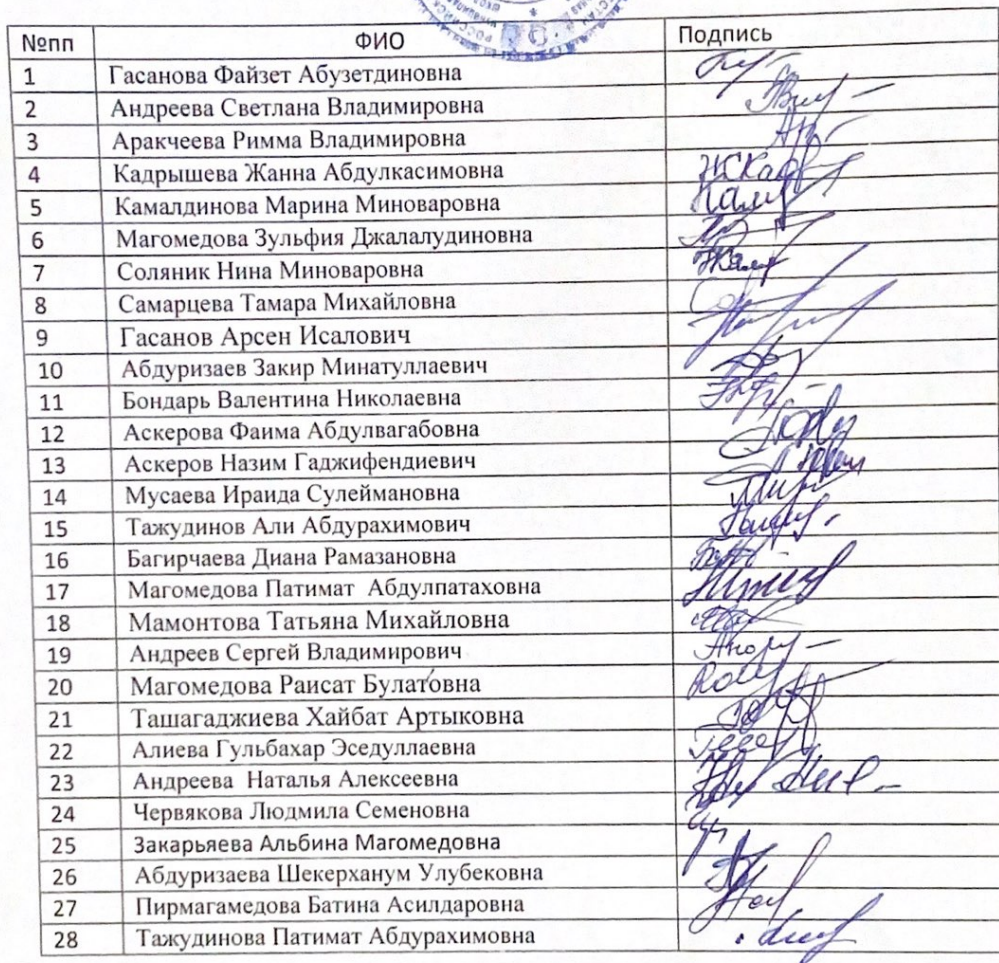 №пп ФИО Подпись
1 Гасанова Файзет Абузетдиновна
2 Андреева Светлана Владимировна
3 Аракчеева Римма Владимировна
4 Кадрышева Жанна Абдулкасимовна
5 Камалдинова Марина Миноваровна
6 Магомедова Зульфия Джалалудиновна
7 Соляник Нина Миноваровна
8 Самарцева Тамара Михайловна
9 Гасанов Арсен Исалович
10 Абдуризаев Закир Минатуллаевич
11 Бондарь Валентина Николаевна
12 Аскерова Фаима Абдулвагабовна
13 Аскеров Назим Гаджифендиевич
14 Мусаева Ираида Сулеймановна
15 Тажудинов Али Абдурахимович
16 Багирчаева Диана Рамазановна
17 Магомедова Патимат Абдулпатаховна
18 Мамонтова Татьяна Михайловна
19 Андреев Сергей Владимирович
20 Магомедова Раисат Булатовна
21 Ташагаджиева Хайбат Артыковна
22 Алиева Гульбахар Эседуллаевна
23 Андреева Наталья Алексеевна
24 Червякова Людмила Семеновна
25 Закарьяева Альбина Магомедовна
26 Абдуризаева Шекерханум Улубековна
27 Пирмагамедова Батина Асилдаровна
28 Тажудинова Патимат Абдурахимовна